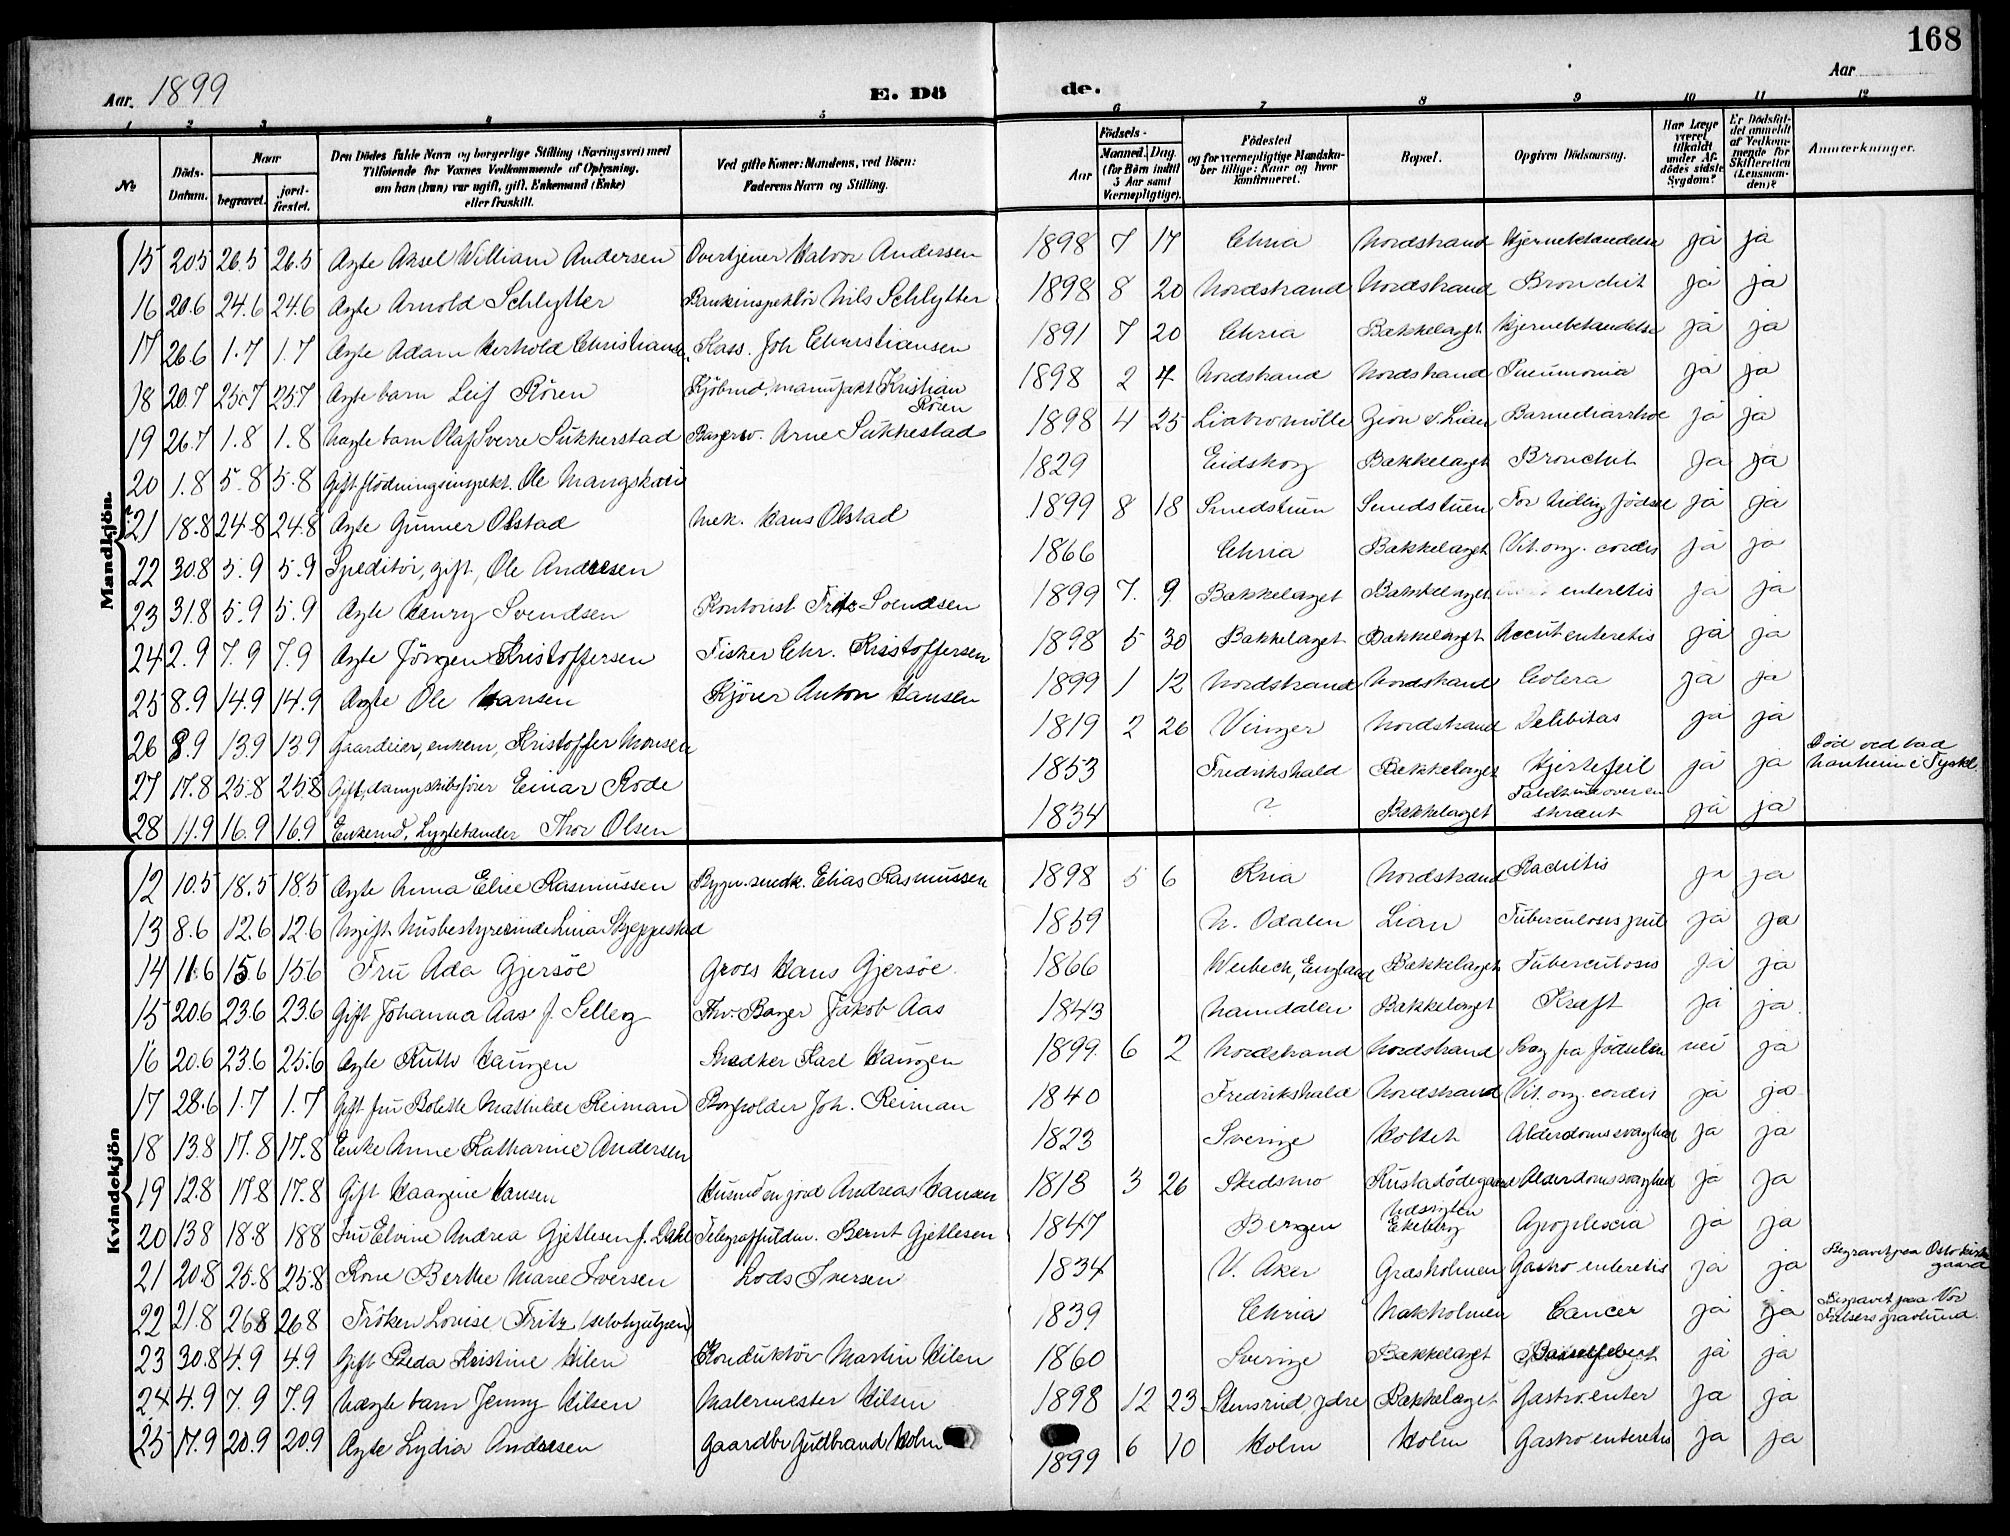 168
Aar. 1899
E. Dö de.
Aar
1 2 3 4 5 6 7 8 9 10 11 12
№
Döds-Datum.
Naar
begravet. jord-fæstet.
Den Dödes fulde Navn og borgerlige Stilling (Næringsvei) med
Tilföiende for Voxnes Vedkommende af Oplysning,
om han (hun) var ugift, gift, Enkemand (Enke)
eller fraskilt.
Ved gifte Koner: Mandens, ved Börn:
Faderens Navn og Stilling.
Födsels-
Aar
Maaned. Dag
(for Börn indtil
5 Aar samt
Værnepligtige).
Födested
og for værnepligtige Mandska-
ber tillige: Naar og hvor
konfirmeret.
Bopæl.
Opgiven Dödsaarsag.
Har Læge
været
tilkaldt
under Af-
dödes sidste
Sygdom?
Er Dödsfal-
det anmeldt
af Vedkom-
mende for
Skifteretten
(Lensman-
den)?
Anmærkninger.
Mandkjön.
15 20.5 26.5 26.5 Ægte Aksel William Andersen Overtjener Halvor Andersen 1898 7 17 Chria Nordstrand Hjernebetændelse ja ja
16 20.6 24.6 24.6 Ægte Arnold Schlytter Bankinspektör Nils Schlytter 1898 8 20 Nordstrand Nordstrand Bronchit ja ja
17 26.6 1.7 1.7 Ægte Adam Herhold Christiansen Kass. Joh Christiansen 1891 7 20 Chria Bækkelaget Hjernebetændelse ja ja
18 20.7 25.7 25.7 Ægte barn Leif Rören Kjöbmd. manufakt Kristian Rören 1898 2 4 Nordstrand Nordstrand Pneumonia ja ja
19 26.7 1.8 1.8 Uægte barn Olaf Sverre Sukkerstad Bagersv. Arne Sukkestad 1898 4 25 Liabromölle Lian Barnediarrhoe ja ja
20 1.8 5.8 5.8 Gift flödningsinspekt. Ole Mangskau 1829 Eidskog Bækkelaget Bronchit ja ja
21 18.8 24.8 24.8 Ægte Gunner Olstad Mek. Hans Olstad 1899 8 18 Smedstuen Smedstuen For tidlig födsel ja ja
22 30.8 5.9 5.9 Speditör, gift, Ole Andresen 1866 Chria Bækkelaget Vit. org. cordis ja ja
23 31.8 5.9 5.9 Ægte Henry Svendsen Kontorist Fritz Svendsen 1899 7. 9 Bækkelaget Bækkelaget enteretis ja ja
24 2.9 7.9 7.9 Ægte Jörgen Kristoffersen Fisker Chr. Kristoffersen 1898 5 30 Bækkelaget Bækkelaget Accut enteretis ja ja
25 8.9 14.9 14.9 Ægte Ole Hansen Kjörer Anton Hansen 1899 1 12 Nordstrand Nordstrand Colera ja ja
26 8.9 13.9 13.9 Gaardeier, enkem, Kristoffer Monsen 1819 2 26 Vinger Nordstrand Debibitas ja ja
27 17.8 25.8 25.8 Gift, dampskibsförer Einar Rode 1853 Fredrikshald Bækkelaget Hjertefeil ja ja Död ved bad Nauheim i Tyskl.
28 11.9 16.9 16.9 Enkemd, Lygtetænder Thor Olsen 1834 ? Bækkelaget Faldt ud over en skrænt ja ja
Kvindekjön
12 10.5 18.5 18.5 Ægte Anna Elise Rasmussen Bygn. snedk. Elias Rasmussen 1898 5 6 Kria Nordstrand Rachitis ja ja
13 8.6 12.6 12.6 Ugift Husbestyrerinde Lina Skjeppestad 1859 N. Odalen Lian Tuberculosis pul ja ja
14 11.6 15.6 15.6 Fru Ada Gjersöe Gross Hans Gjersöe 1866 England Bækkelaget Tuberculosis ja ja
15 20.6 23.6 23.6 Gift Johanna Aas f. Selleg Bager Jakob Aas 1843 Namdalen Bækkelaget Kræft ja ja
16 20.6 23.6 25.6 Ægte Ruth Haugen Snedker Karl Haugen 1899. 6 2 Nordstrand Nordstrand Svag fra Födselen nei ja
17 28.6 1.7 1.7 Gift fru Bolette Mathilde Reiman Bogholder Joh. Reiman 1840 Fredrikshald Nordstrand Vit. org. cordis ja ja
18 13.8 17.8 17.8 Enke Anne Katharine Andersen 1823 Sverige Holtet Alderdomssvaghed ja ja
19 12.8 17.8 17.8 Gift Haagine Hansen Husmd en jord Andreas Hansen 1813 3 26 Skedsmo Rustadödegaard Alderdomssvaghed ja ja
20 13.8 18.8 18.8 Fru Elvine Andrea Gjetlesen f. Dahl Telegraffuldm. Bernt Gjetlesen 1847 Bergen Udsigten Ekeberg Apoplexia ja ja
21 20.8 25.8 25.8 Kone Berthe Marie Iversen Lods Iversen 1834 V. Aker Græsholmen Gastro enteretis ja ja Begravet paa Oslo kirkegaard
22 21.8 26.8 26.8 Fröken Lovise Fritz (selvhjulpen) 1839 Chria Nakholmen Cancer ja ja Begravet paa Vor Frelsers gravlund.
23 30.8 4.9 4.9 Gift Beda Kristine Hilen Konduktör Martin Hilen 1860 Sverige Bækkelaget Barselfeber ja ja
24 4.9 7.9 7.9 Uægte barn Jenny Nilsen Malermester Nilsen 1898 12 23 Stensrud, Ydre Bækkelaget Gastro enter ja ja
25 17.9 20.9 20.9 Ægte Lydia Andresen Gaardbr Gudbrand Holm 1899 6 10 Holm Holm Gastro enteretis ja ja